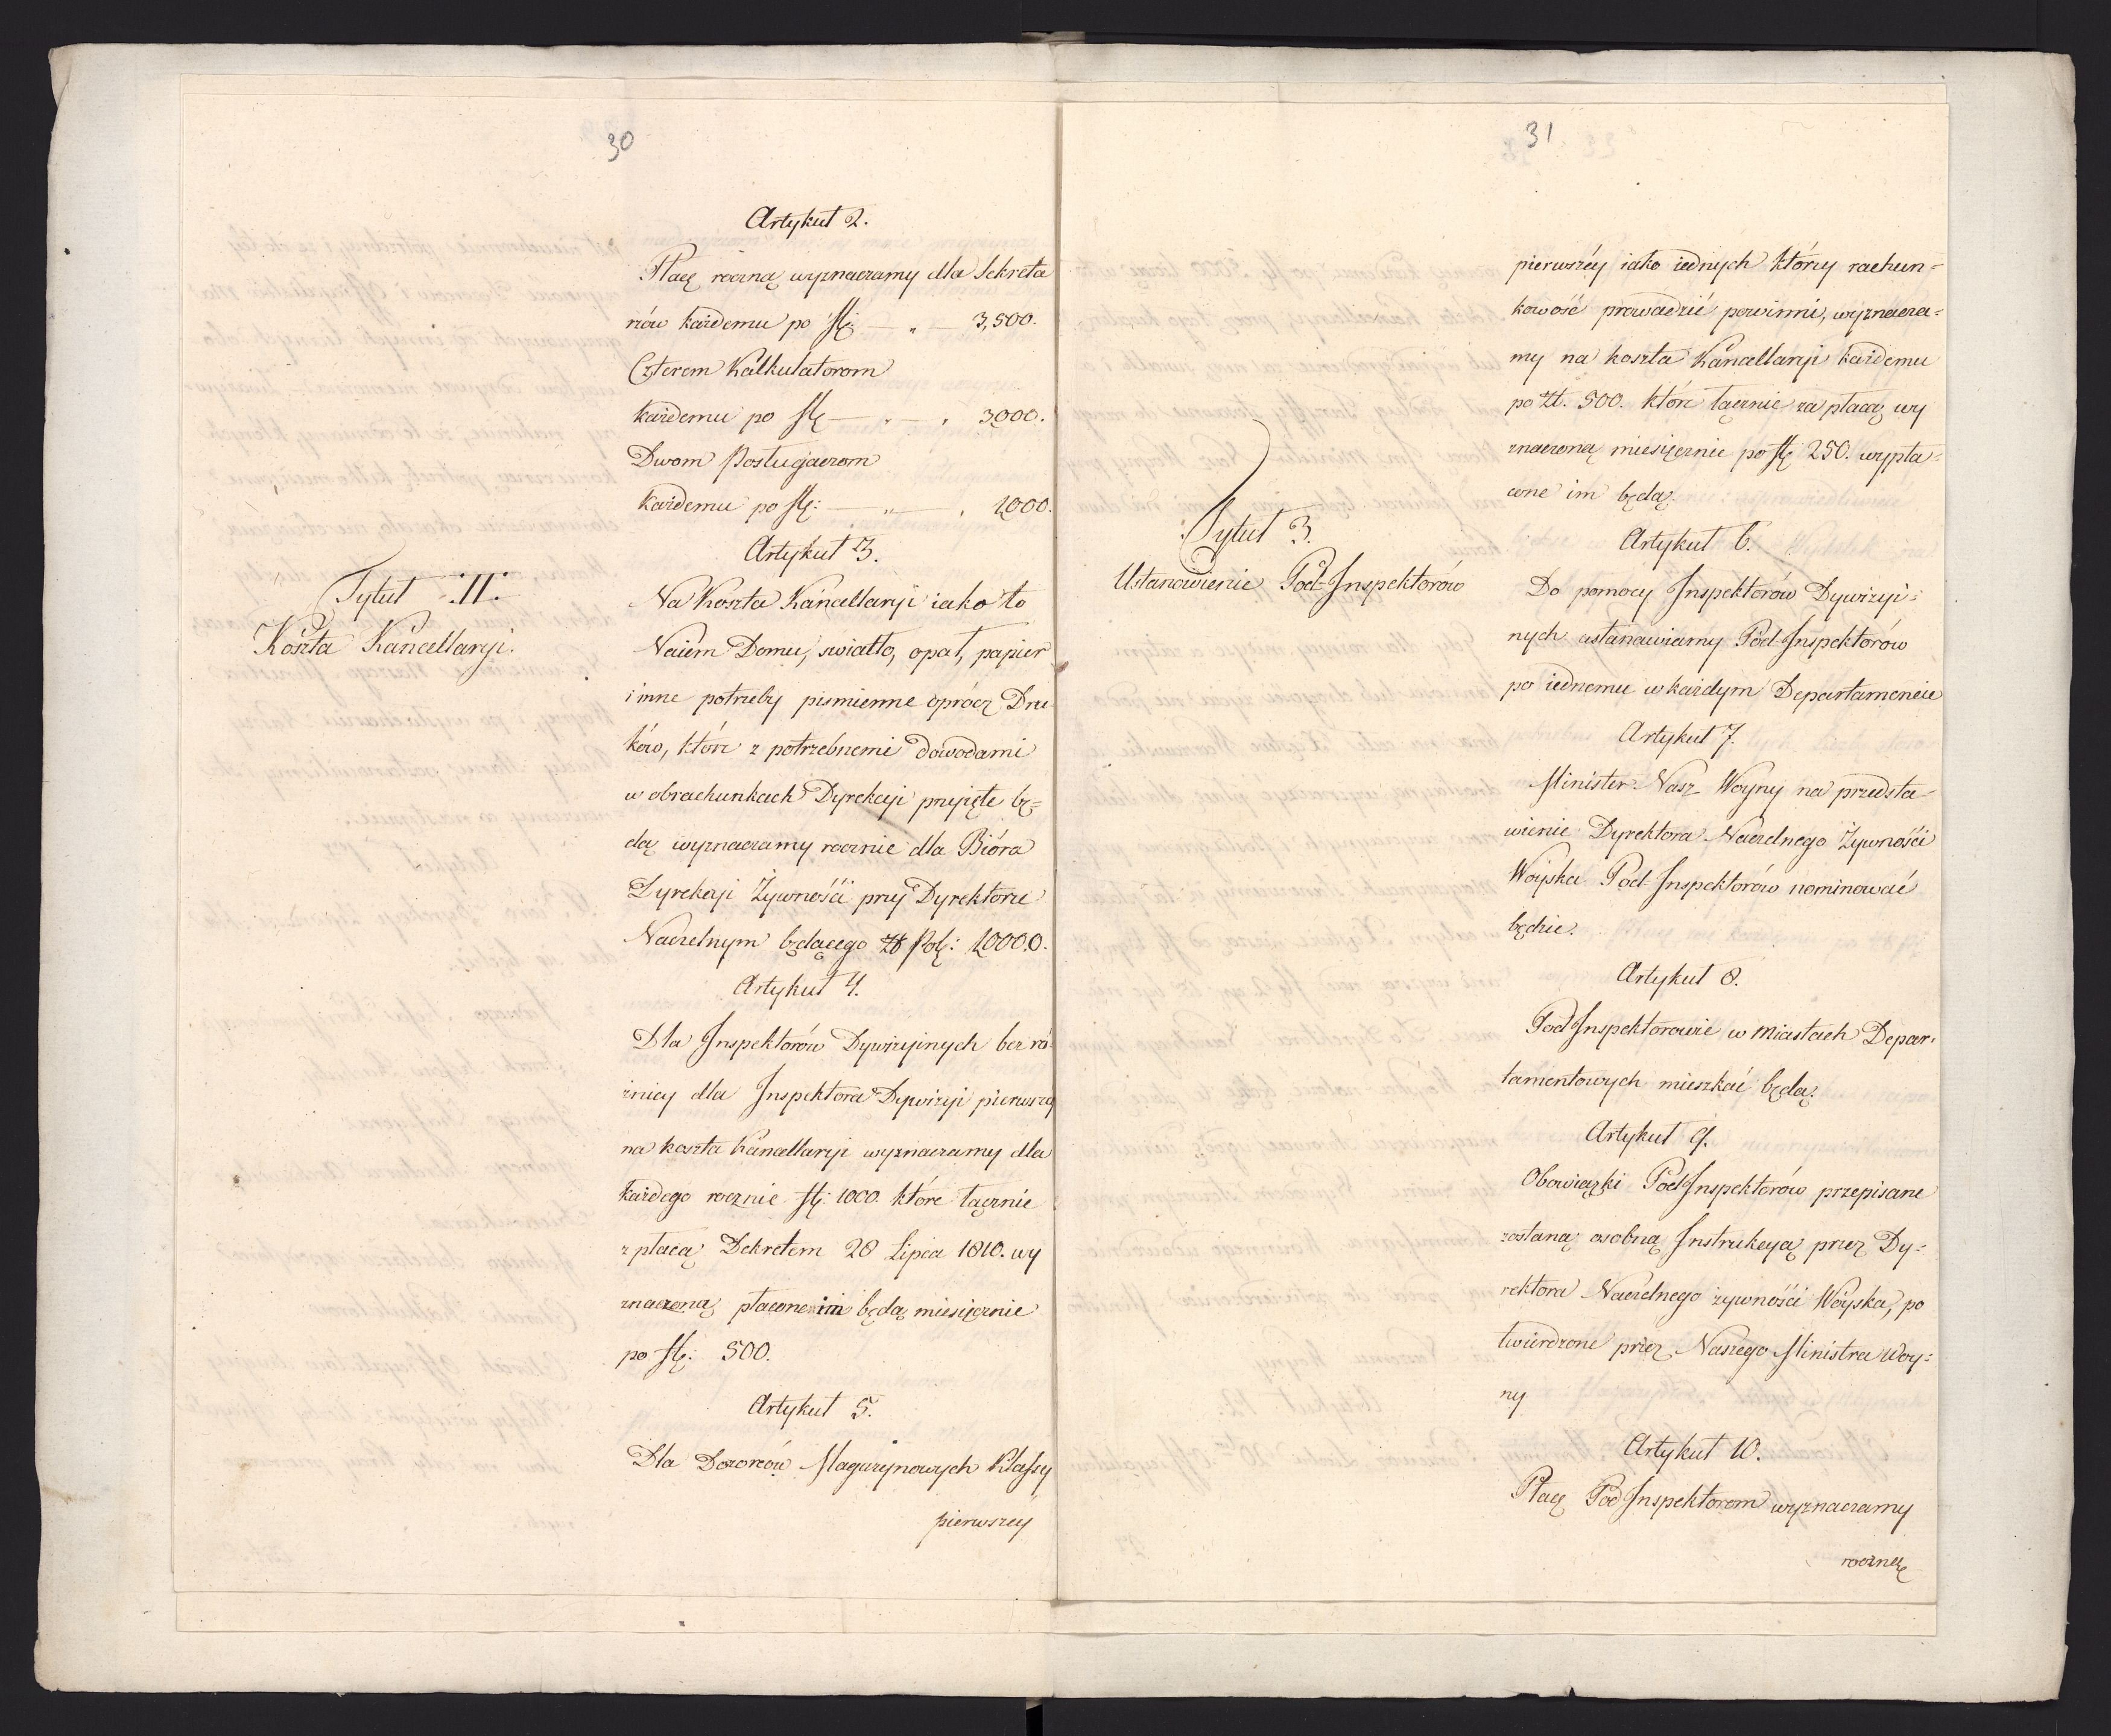 30
Artykuł 2.
Płacę roczną wyznaczamy dla Sekreta
rzów każdemu po złl: — „ — 3,500.
Czterem Kalkulatorom
każdemu po złl — „ — „ 3000.
Dwom Posługaczom
każdemu po złl: — „ — „ 1000.
Artykuł 3.
Tytuł II.
Koszta Kancellaryi.
Na Koszta Kancellaryi iako to
Naiem Domu, swiatło, opał, papier
i inne potrzeby pismienne oprócz Dru
ków, które z potrzebnemi dowodami
w obrachunkach Dyrekcyi przyięte bę=
dą wyznaczamy rocznie dla Bióra
Dyrekcyi Żywności przy Dyrektorze
Naczelnym będącego zł Pol: 10000.
Artykuł 4.
Dla Inspektorów Dywizyinych bez ró=
żnicy dla Inspektora Dywizyi pierwszey
na koszta Kancellaryi wyznaczamy dla
każdego rocznie zł: 1000. które łącznie
z płacą Dekretem 28 Lipca 1810. wy
znaczoną płacone im będą miesięcznie
po złl: 500.
Artykuł 5.
Dla Dozorców Magazynowych Klassy
pierwszey
31
pierwszéy iako iednych którzy rachun=
kowość prowadzić powinni, wyznacza=
my na koszta Kancellaryi każdemu
po zł. 500. które łącznie za płacą wy
znaczoną miesięcznie po złl 250. wypła=
cone im będą.
Tytuł 3.
Ustanowienie Pod-Inspektorów
Artykuł 6.
Do pomocy Inspektorów Dywizyi=
nych ustanawiamy Pod-Inspektorów
po iednemu w każdym Departamencie
Artykuł 7.
Minister Nasz Woyny na przedsta=
wienie Dyrektora Naczelnego Żywności
Woyska Pod-Inspektorów nominować
będzie.
Artykuł 8.
Pod Inspektorowie w miastach Depar=
tamentowych mieszkać będą.
Artykuł 9.
Obowiązki Pod Inspektorów przepisane
zostaną osobną Instrukcyą przez Dy=
rektora Naczelnego żywności Woyska, po
twierdzone przez Naszego Ministra Woy=
ny
Artykuł 10.
Płacę Pod Inspektorom wyznaczamy
roczną